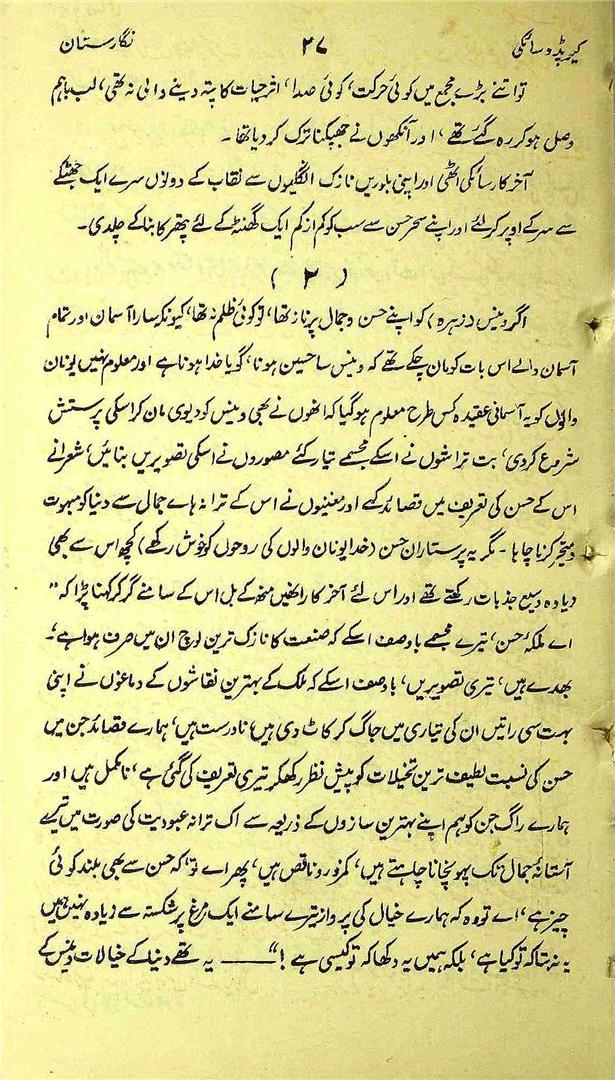 کیوپڈ و سائکی ۲۷ نگارستان
تو اتنے بڑے مجمع میں کوئی حرکت، کوئی صدا، اثر حیات کا پتہ دینے والی نہ تھی، لب باہم
وصل ہو کر رہ گئے تھے، اور آنکھوں نے جھپکنا ترک کر دیا تھا۔
آخر کار سائکی اٹھی اور اپنی بلوریں نازک انگلیوں سے نقاب کے دونوں سرے ایک جھٹکے
سے سر کے اوپر کر لئے اور اپنے سحر حسن سے سب کو کم از کم ایک گھنٹہ کے لئے پتھر کا بنا کے چلدی۔
(۲)
اگر وینس (زہرہ) کو اپنے حسن و جمال پر ناز تھا، تو کوئی ظلم نہ تھا، کیونکہ سارا آسمان اور تمام
آسمان والے اس بات کو مان چکے تھے کہ وینس سا حسین ہونا، گویا خدا ہونا ہے اور معلوم نہیں یونان
والوں کو یہ آسمانی عقیدہ کس طرح معلوم ہو گیا کہ انھوں نے بھی وینس کو دیوی مان کر اسکی پرستش
شروع کر دی، بت تراشوں نے اسکے مجسمے تیار کئے مصوروں نے اسکی تصویریں بنائیں، شعرا نے
اس کے حسن کی تعریف میں قصائد کہے اور مغنیوں نے اس کے ترانہ ہاے جمالی سے دنیا کو مبہوت
و متحیر کرنا چاہا۔ مگر یہ پرستاران حسن (خدا یونان والوں کی روحوں کو خوش رکھے) کچھ اس سے بھی
زیادہ وسیع جذبات رکھتے تھے اور اس لئے آخر کار انھیں منھ کے بل اس کے سامنے گر کر کہنا پڑا کہ "
اے ملکۂ حسن، تیرے مجسمے باوصف اسکے کہ صنعت کا نازک ترین لوچ ان میں صرف ہوا ہے،
بھدے ہیں، تیری تصویریں، باوصف اسکے کہ ملک کے بہترین نقاشوں کے دماغوں نے اپنی
بہت سی راتیں ان کی تیاری میں جاگ کر کاٹ دی ہیں، نادرست ہیں، ہمارے قصائد جن میں
حسن کی نسبت لطیف ترین تخیلات کو پیش نظر رکھکر تیری تعریف کی گئی ہے، نامکمل ہیں اور
ہمارے راگ جن کو ہم اپنے بہترین سازوں کے ذریعہ سے اک ترانۂ عبودیت کی صورت میں تیرے
آستانۂ جمال تک پہونچانا چاہتے ہیں، کمزور و ناقص ہیں، پھر اے تو، کہ حسن سے بھی بلند کوئی
چیز ہے، اے تو وہ کہ ہمارے خیال کی پرواز تیرے سامنے ایک مرغ پر شکستہ سے زیادہ نہیں ہمیں
یہ نہ بتا کہ تو کیا ہے، بلکہ ہمیں یہ دکھا کہ تو کیسی ہے!" —— یہ تھے دنیا کے خیالات وینس کے